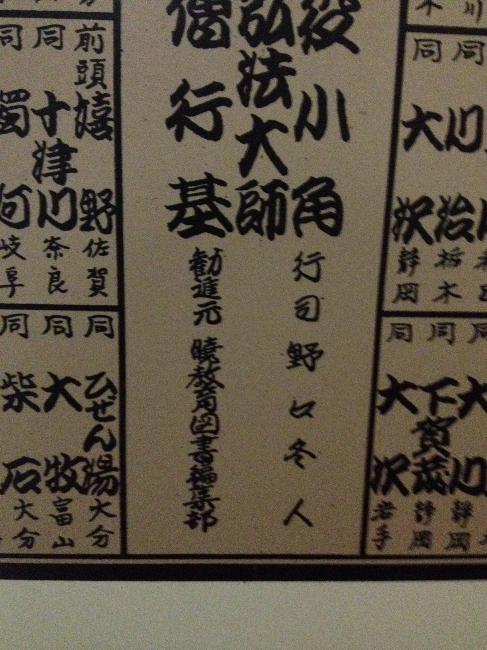 同 川治 栃木
同 大沢 静岡
同 大川 静岡
同 下賀茂 静岡
同 大沢 岩手
役小角
弘法大師
僧行基
行司 野口冬人
勧進元 暁教育図書編集部
前頭 嬉野 佐賀
同 十津川 奈良
同 濁河 岐阜
同 ひぜん湯 大分
同 大牧 富山
同 柴石 大分